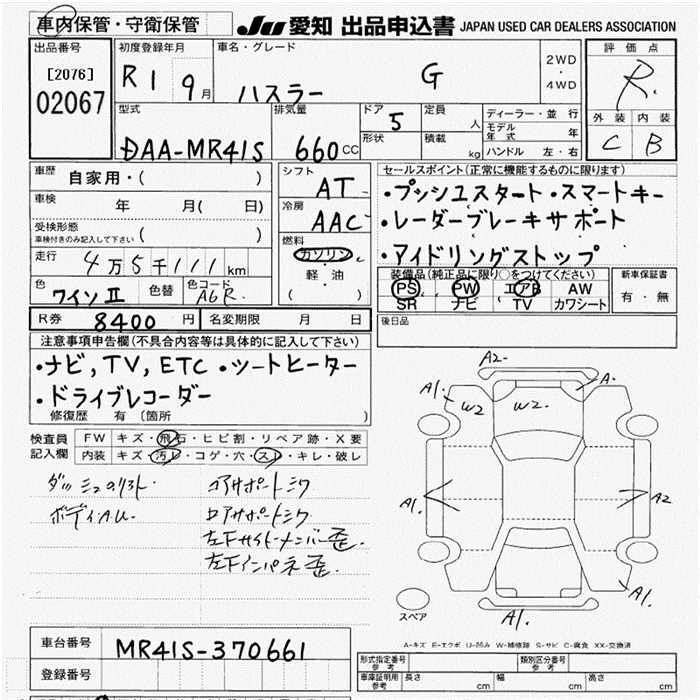 車内保管・守衛保管 JU 愛知 出品申込書 JAPAN USED CAR DEALERS ASSOCIATION
出品番号 初度登録年月 車名・グレード 2WD 評価点
[2076] R1 9月 ハスラー G ・ R.
02067 4WD
型式 排気量 ドア 5 定員 人 ディーラー・並行 外装 内装
DAA-MR41S 660cc 形状 積載 kg モデル年式 年 C B
ハンドル 左・右
車歴 自家用・( ) シフト AT セールスポイント(正常に機能するものに限ります)
車検 年 月( 日) 冷房 AAC ・プッシュスタート・スマートキー
受検形態 ( ) ・レーダーブレーキサポート
車検付きのみ記入して下さい 燃料 ガソリン ・アイドリングストップ
走行 4万5千111km 軽・油 装備品(純正品に限り○をつけてください) 新車保証書
色 ワインⅡ 色替 色コード A6R. ( ) PS PW エアB AW 有・無
SR ナビ TV カワシート
R券 8400円 名変期限 月 日 後日品
注意事項申告欄(不具合内容等は具体的に記入して下さい)
・ナビ,TV,ETC・シートヒーター
・ドライブレコーダー
修復歴 有 (箇所 )
検査員 FW キズ・飛石・ヒビ割・リペア跡・X要
記入欄 内装 キズ・汚レ・コゲ・穴・スレ・キレ・破レ
コアサポートミワ
ロアサポートミワ
左Fサイドメンバー歪.
左Fインパネ歪.
A2 A1. W2 W2 A.
A1. A2
A1. A1.
スペア
A-キズ E-エクボ U-凹み W-補修跡 S-サビ C-腐食 XX-交換済
車台番号 MR41S-370661
登録番号
形式指定番号 参考 類別区分番号 参考
車庫証明用 参考 長さ cm 幅 cm 高さ cm